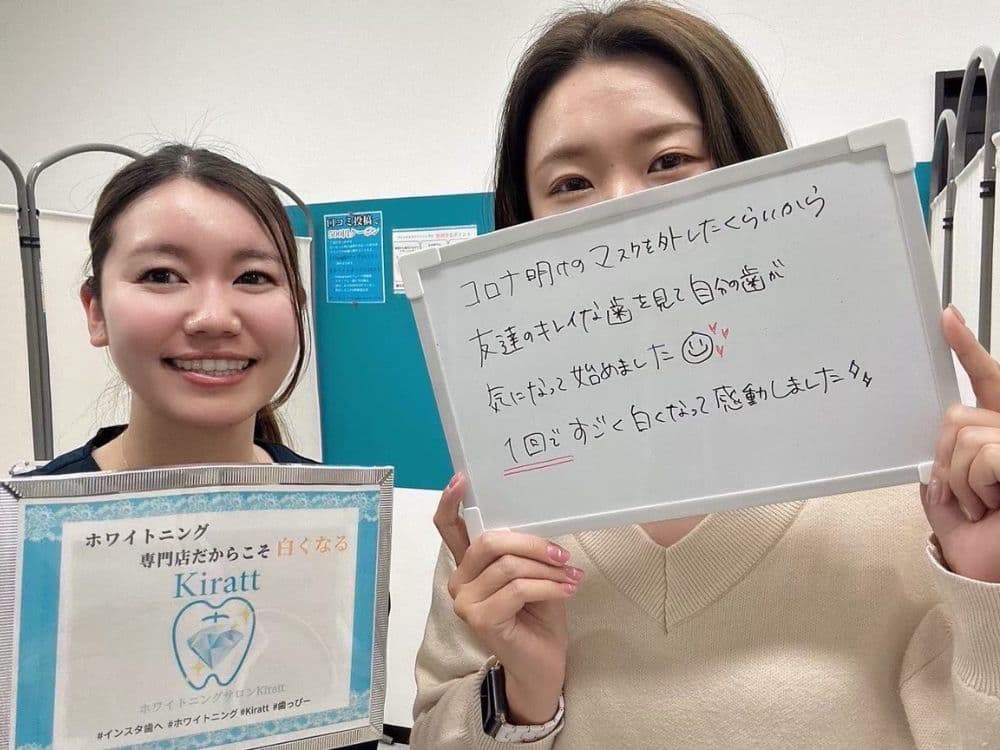 口コミ投稿で
500円クーポン
コロナ明けのマスクを外したくらいから
友達のキレイな歯を見て自分の歯が
気になって始めました
1回ですごく白くなって感動しました
ホワイトニング
専門店だからこそ 白くなる
Kiratt
ホワイトニングサロンKiratt
#インスタ歯へ #ホワイトニング #Kiratt #歯っぴー